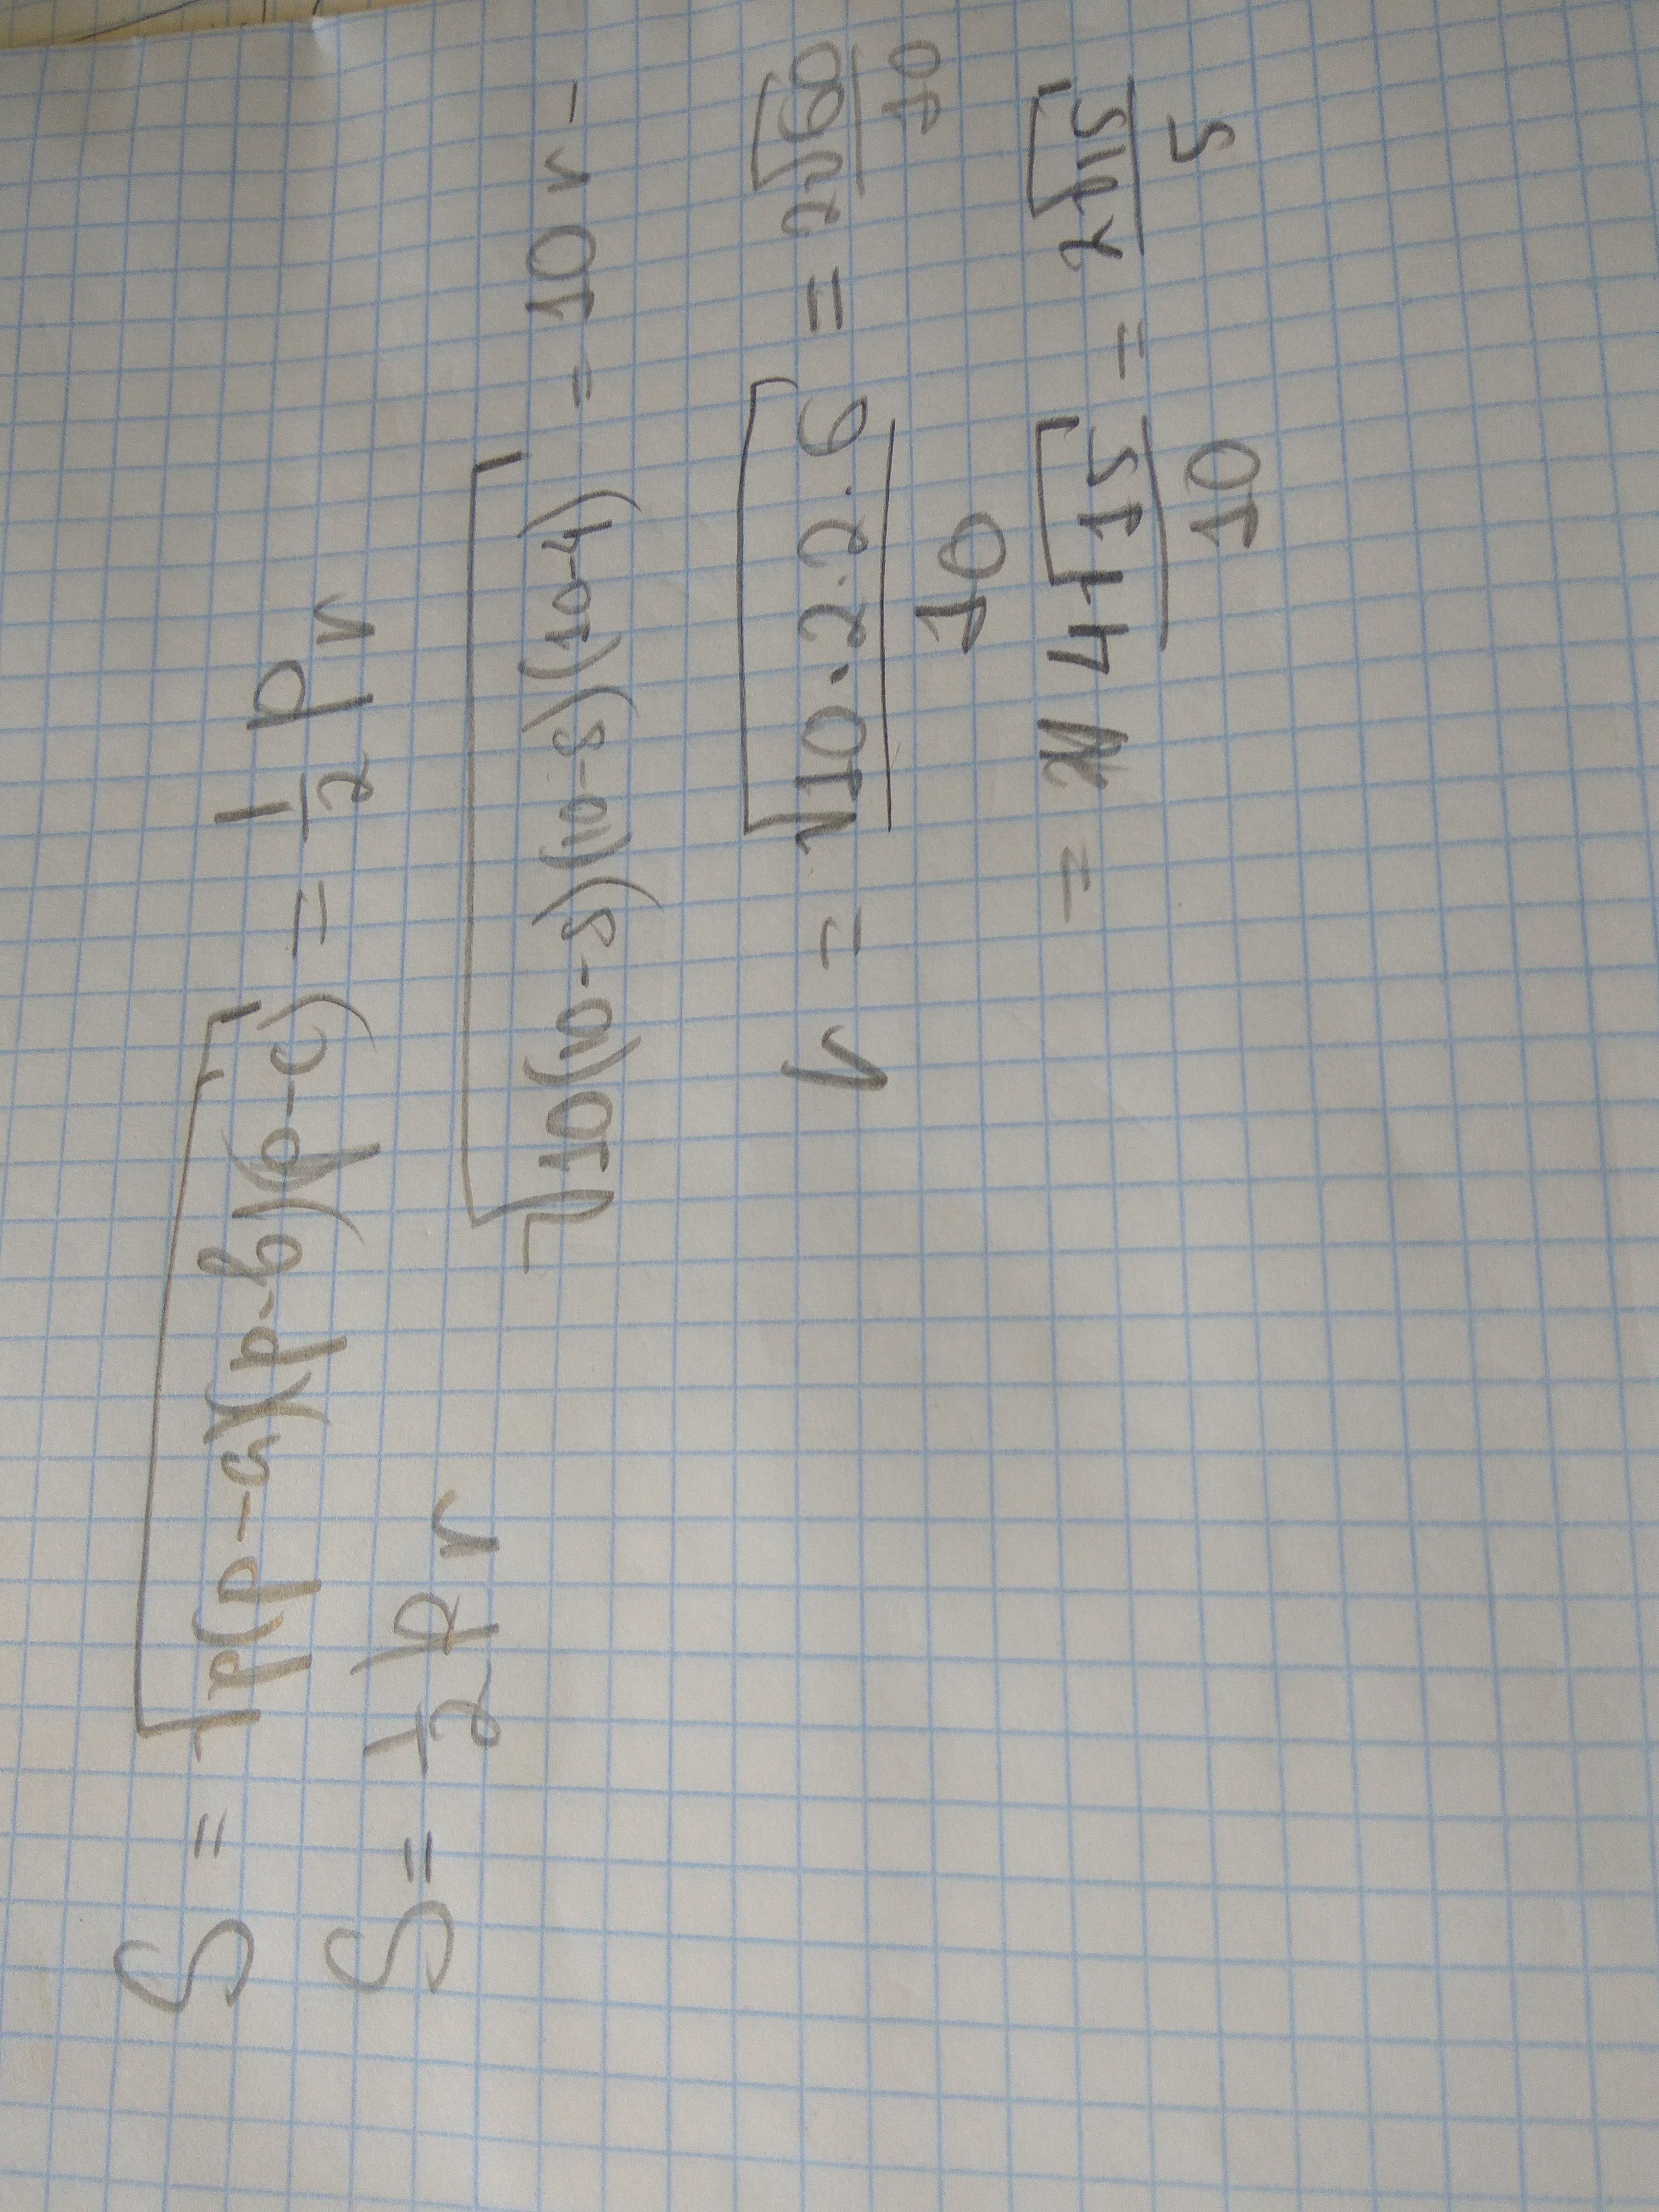 S = √p(p-a)(p-b)(p-c) = 1/2 pr
S = 1/2 pr
√10(10-8)(10-8)(10-4) = 10 r -
r = √10·2·2·6/10 = 2√60/10
= 4√15/10 = 2√15/5